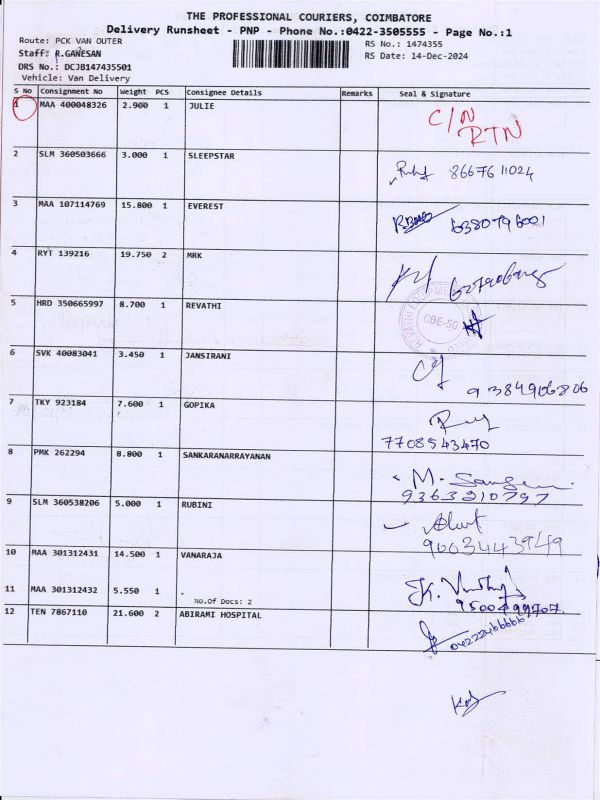 THE PROFESSIONAL COURIERS, COIMBATORE
Delivery Runsheet - PNP - Phone No.:0422-3505555 - Page No.:1
Route: PCK VAN OUTER
RS No.: 1474355
Staff: R.GANESAN
RS Date: 14-Dec-2024
DRS No.: DCJB147435501
Vehicle: Van Delivery
S No Consignment No Weight PCS Consignee Details Remarks Seal & Signature
1 MAA 400048326 2.900 1 JULIE C/N RTN
2 SLM 360503666 3.000 1 SLEEPSTAR 8667611024
3 MAA 107114769 15.800 1 EVEREST 6380796001
4 RYT 139216 19.750 2 MRK
5 HRD 350665997 8.700 1 REVATHI CBE-50
6 SVK 40083041 3.450 1 JANSIRANI 9384906806
7 TKY 923184 7.600 1 GOPIKA
7708543470
8 PMK 262294 8.800 1 SANKARANARRAYANAN M.
9363210797
9 SLM 360538206 5.000 1 RUBINI
9003443949
10 MAA 301312431 14.500 1 VANARAJA
11 MAA 301312432 5.550 1 .
No.Of Docs: 2
9500499707
12 TEN 7867110 21.600 2 ABIRAMI HOSPITAL